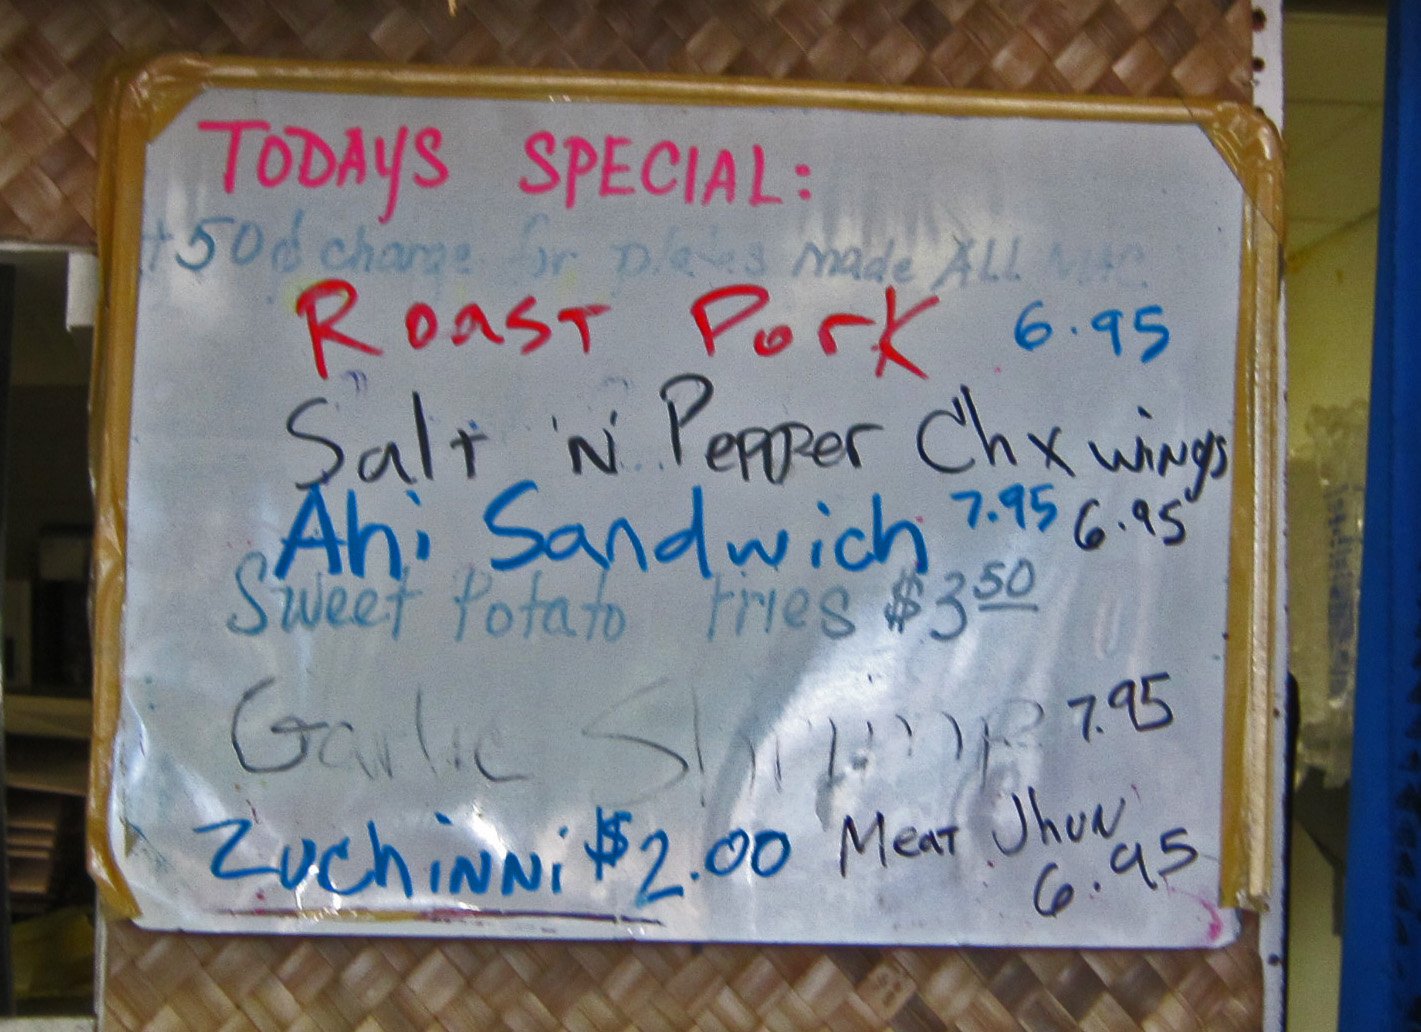 TODAYS SPECIAL:
+50¢ charge for plates made ALL
Roast Pork 6.95
Salt 'N' Pepper Chx wings
6.95
Ahi Sandwich 7.95
Sweet Potato fries $3.50
Garlic Shrimp 7.95
Zuchinni $2.00
Meat Jhun
6.95